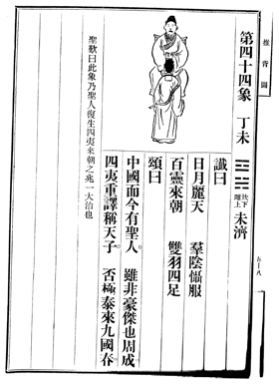 推背圖
第四十四象 丁未
坎下離上 未濟
讖曰
日月麗天 羣陰懾服
百靈來朝 雙羽四足
頌曰
中國而今有聖人 雖非豪傑也周成
四夷重譯稱天子 否極泰來九國春
聖歎曰此象乃聖人復生四夷來朝之兆一大治也